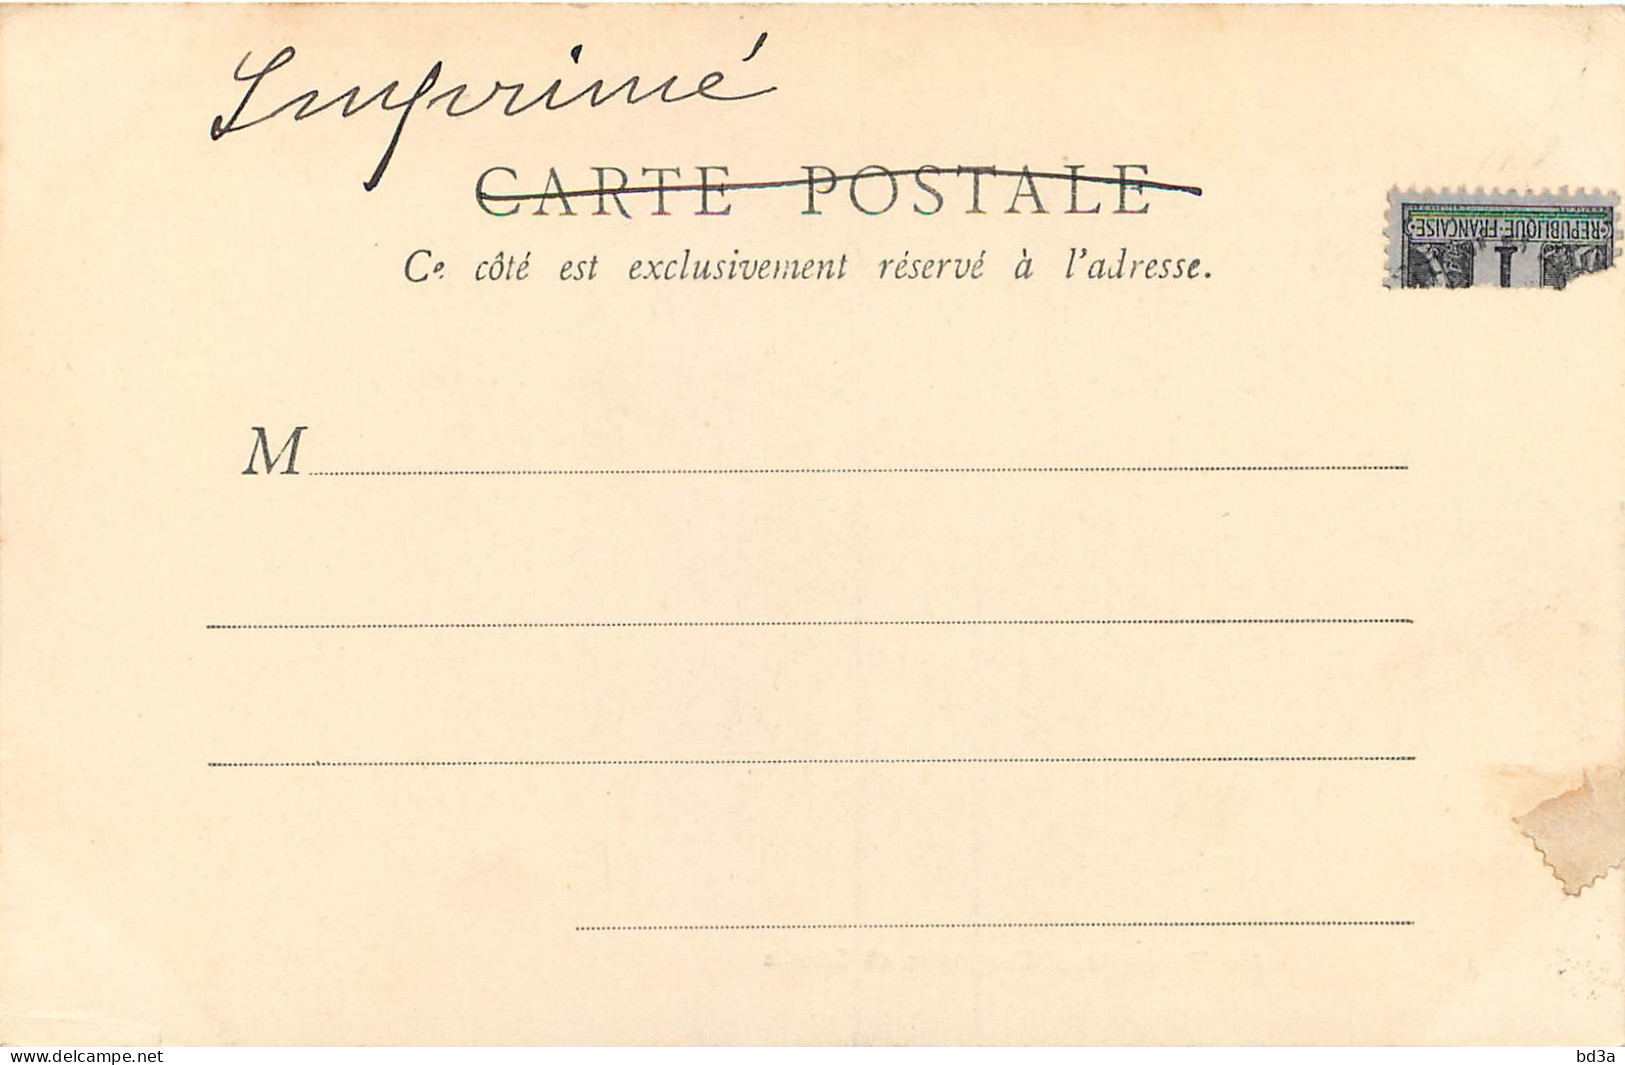 Imprimé
CARTE POSTALE
Ce côté est exclusivement réservé à l'adresse.
·REPUBLIQUE·FRANÇAISE·
1
M
website : delcampe.net
bd3a